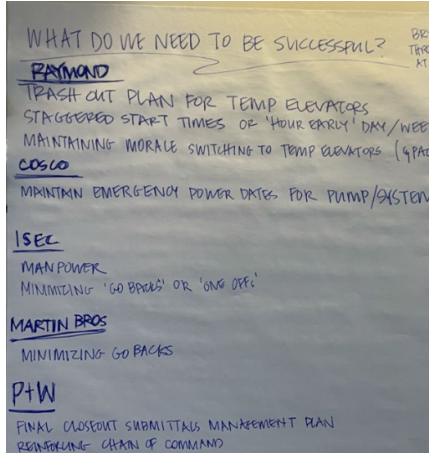 WHAT DO WE NEED TO BE SUCCESSFUL?
RAYMOND
TRASH OUT PLAN FOR TEMP ELEVATORS
STAGGERED START TIMES OR 'HOUR EARLY' DAY/WEE
MAINTAINING MORALE SWITCHING TO TEMP ELEVATORS
COSCO
MAINTAIN EMERGENCY POWER DATES FOR PUMP/SYSTEM
ISEC
MANPOWER
MINIMIZING 'GO BACKS' OR 'ONE OFFS'
MARTIN BROS
MINIMIZING GO BACKS
P+W
FINAL CLOSEOUT SUBMITTALS MANAGEMENT PLAN
REINFORCING CHAIN OF COMMAND
BR
THRO
AT